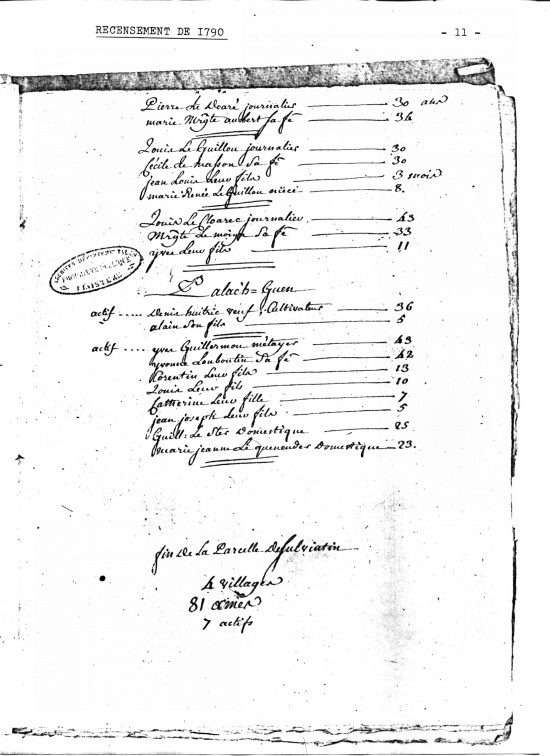 RECENSEMENT DE 1790
- 11 -
Pierre Le Doaré journalier 30 ans
marie Mrgte aubert sa fe 36
Louis Le Guillou journalier 30
Cécile Le masson Sa fe 30
jean Louis Leur fils 3 mois
marie Renée Le Guillou niéce 8.
Louis Le Cloarec journalier 43
Mrgte Le moign Sa fe 33
yves Leur fils 11
ARCHIVES DÉPARTEMENTALES
FINISTÈRE
Palac'h=Guen
actif ..... Denis huitric veuf. Cultivateur 36
alain Son fils 5
actif ..... yves Guillermou métayer 43
yvonne Louboutin Sa fe 42
Corentin Leur fils 13
Louis Leur fils 10
Catherine Leur fille 7
jean joseph Leur fils 5
Guill: Le Domestique 25
marie jeanne Le Domestique 23.
fin De La Parcelle De Sulviatin
4 villages
81 ames
7 actifs